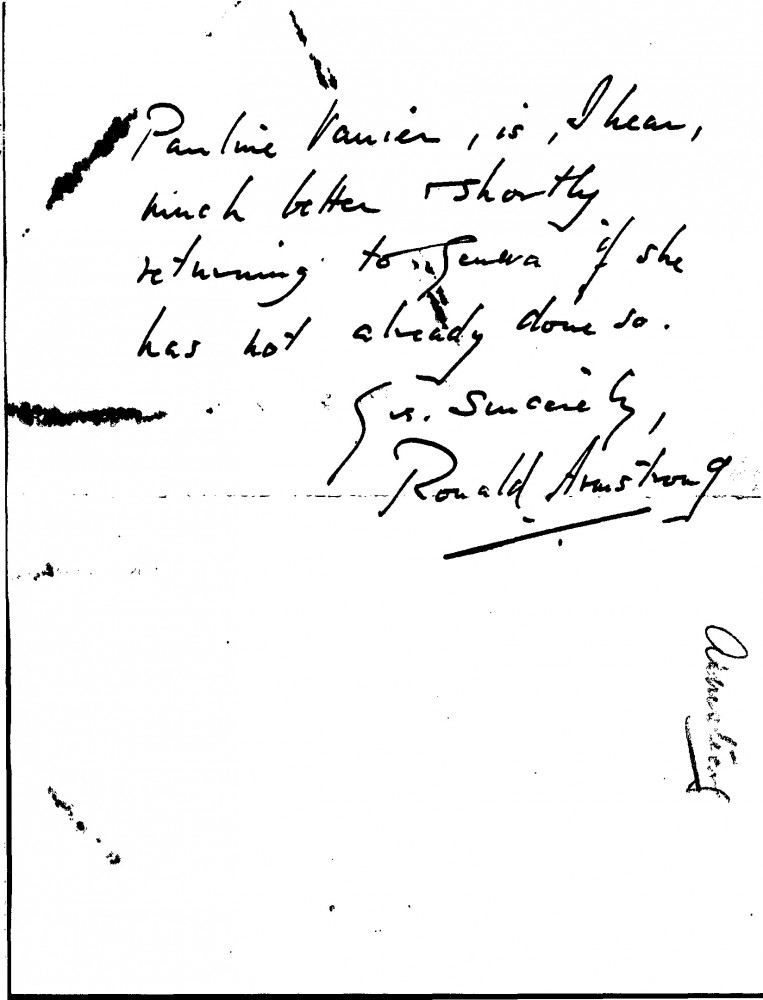 Pauline Vanier, is, I hear,
much better & shortly
returning to Geneva if she
has not already done so.
Yrs. Sincerely,
Ronald Armstrong